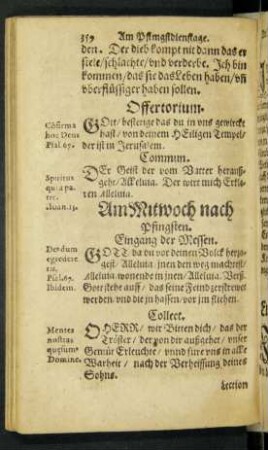 359 Am Pfingstdienstage.
den. Der dieb kompt nit dann das er
stele/schlachte/vnd verderbe. Ich bin
kommen/das sie das Leben haben/vñ
vberflüssiger haben sollen.
Offertorium.
GOtt/bestetige das du in vns gewirckt
hast/von deinem HEiligen Tempel/
der ist in Jerusalem.
Confirma
hoc Deus
Psal.67.
Commun.
DEr Geist der vom Vatter herauß-
gehe/Alleluia. Der wirt mich Erklä-
ren Alleluia.
Spiritus
qui a pa-
tre.
Ioan.15.
Am Mitwoch nach
Pfingsten.
Eingang der Messen.
GOTT da du vor deinen Volck herzo-
gest/Alleluia jnen den weg machtest/
Alleluia wonende in jnen/Alleluia. Verß.
Gott stehe auff/das seine Feind zerstrewet
werden/vnd die jn hassen/vor jm fliehen.
Deus dum
egredere-
ris,
Psal.67.
Ibidem.
Collect.
O HERR/wir Bitten dich/das der
Tröster/der von dir außgehet/vnser
Gemüt Erleuchte/vnnd füre vns in alle
Warheit/nach der Verheissung deines
Sohns.
Mentes
nostras
quæsumꝰ
Domine.
Lection